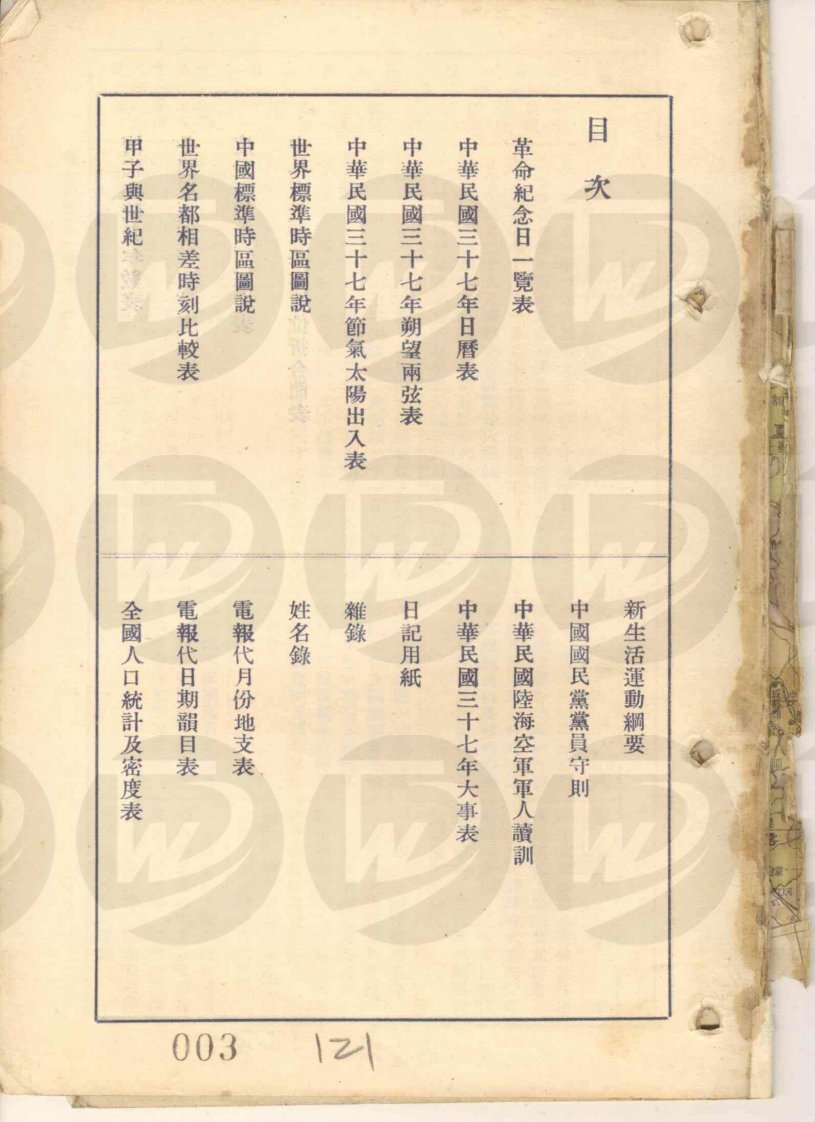 目次
革命紀念日一覽表
中華民國三十七年日曆表
中華民國三十七年朔望兩弦表
中華民國三十七年節氣太陽出入表
世界標準時區圖說
中國標準時區圖說
世界名都相差時刻比較表
甲子與世紀
新生活運動綱要
中國國民黨黨員守則
中華民國陸海空軍軍人讀訓
中華民國三十七年大事表
日記用紙
雜錄
姓名錄
電報代月份地支表
電報代日期韻目表
全國人口統計及密度表
003
121